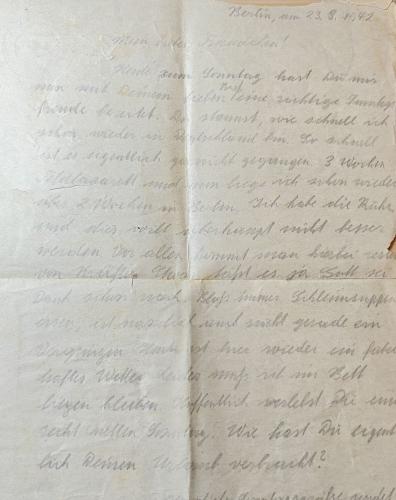 Berlin, am 23.8.1942
Mein liebes Frauchen!
Heute zum Sonntag hast Du mir
nun mit Deinem lieben Brief eine richtige Sonntags
freude bereitet. Du staunst, wie schnell ich
schon wieder in Deutschland bin. So schnell
ist es eigentlich gar nicht gegangen. 3 Wochen
und nun liege ich schon wieder
über 2 Wochen in Berlin. Ich habe die Ruhr
und das will überhaupt nicht besser
werden. Vor allem kommt man hierbei
von Kräften. läßt es ja Gott sei
Dank schon nach. Bloß immer Schleimsuppen
essen, ist natürlich auch nicht gerade ein
Vergnügen. Heute ist hier wieder ein fabel
haftes Wetter, leider muß ich im Bett
liegen bleiben. Hoffentlich verlebst Du einen
recht netten Sonntag. Wie hast Du eigent
lich Deinen Urlaub verbracht?